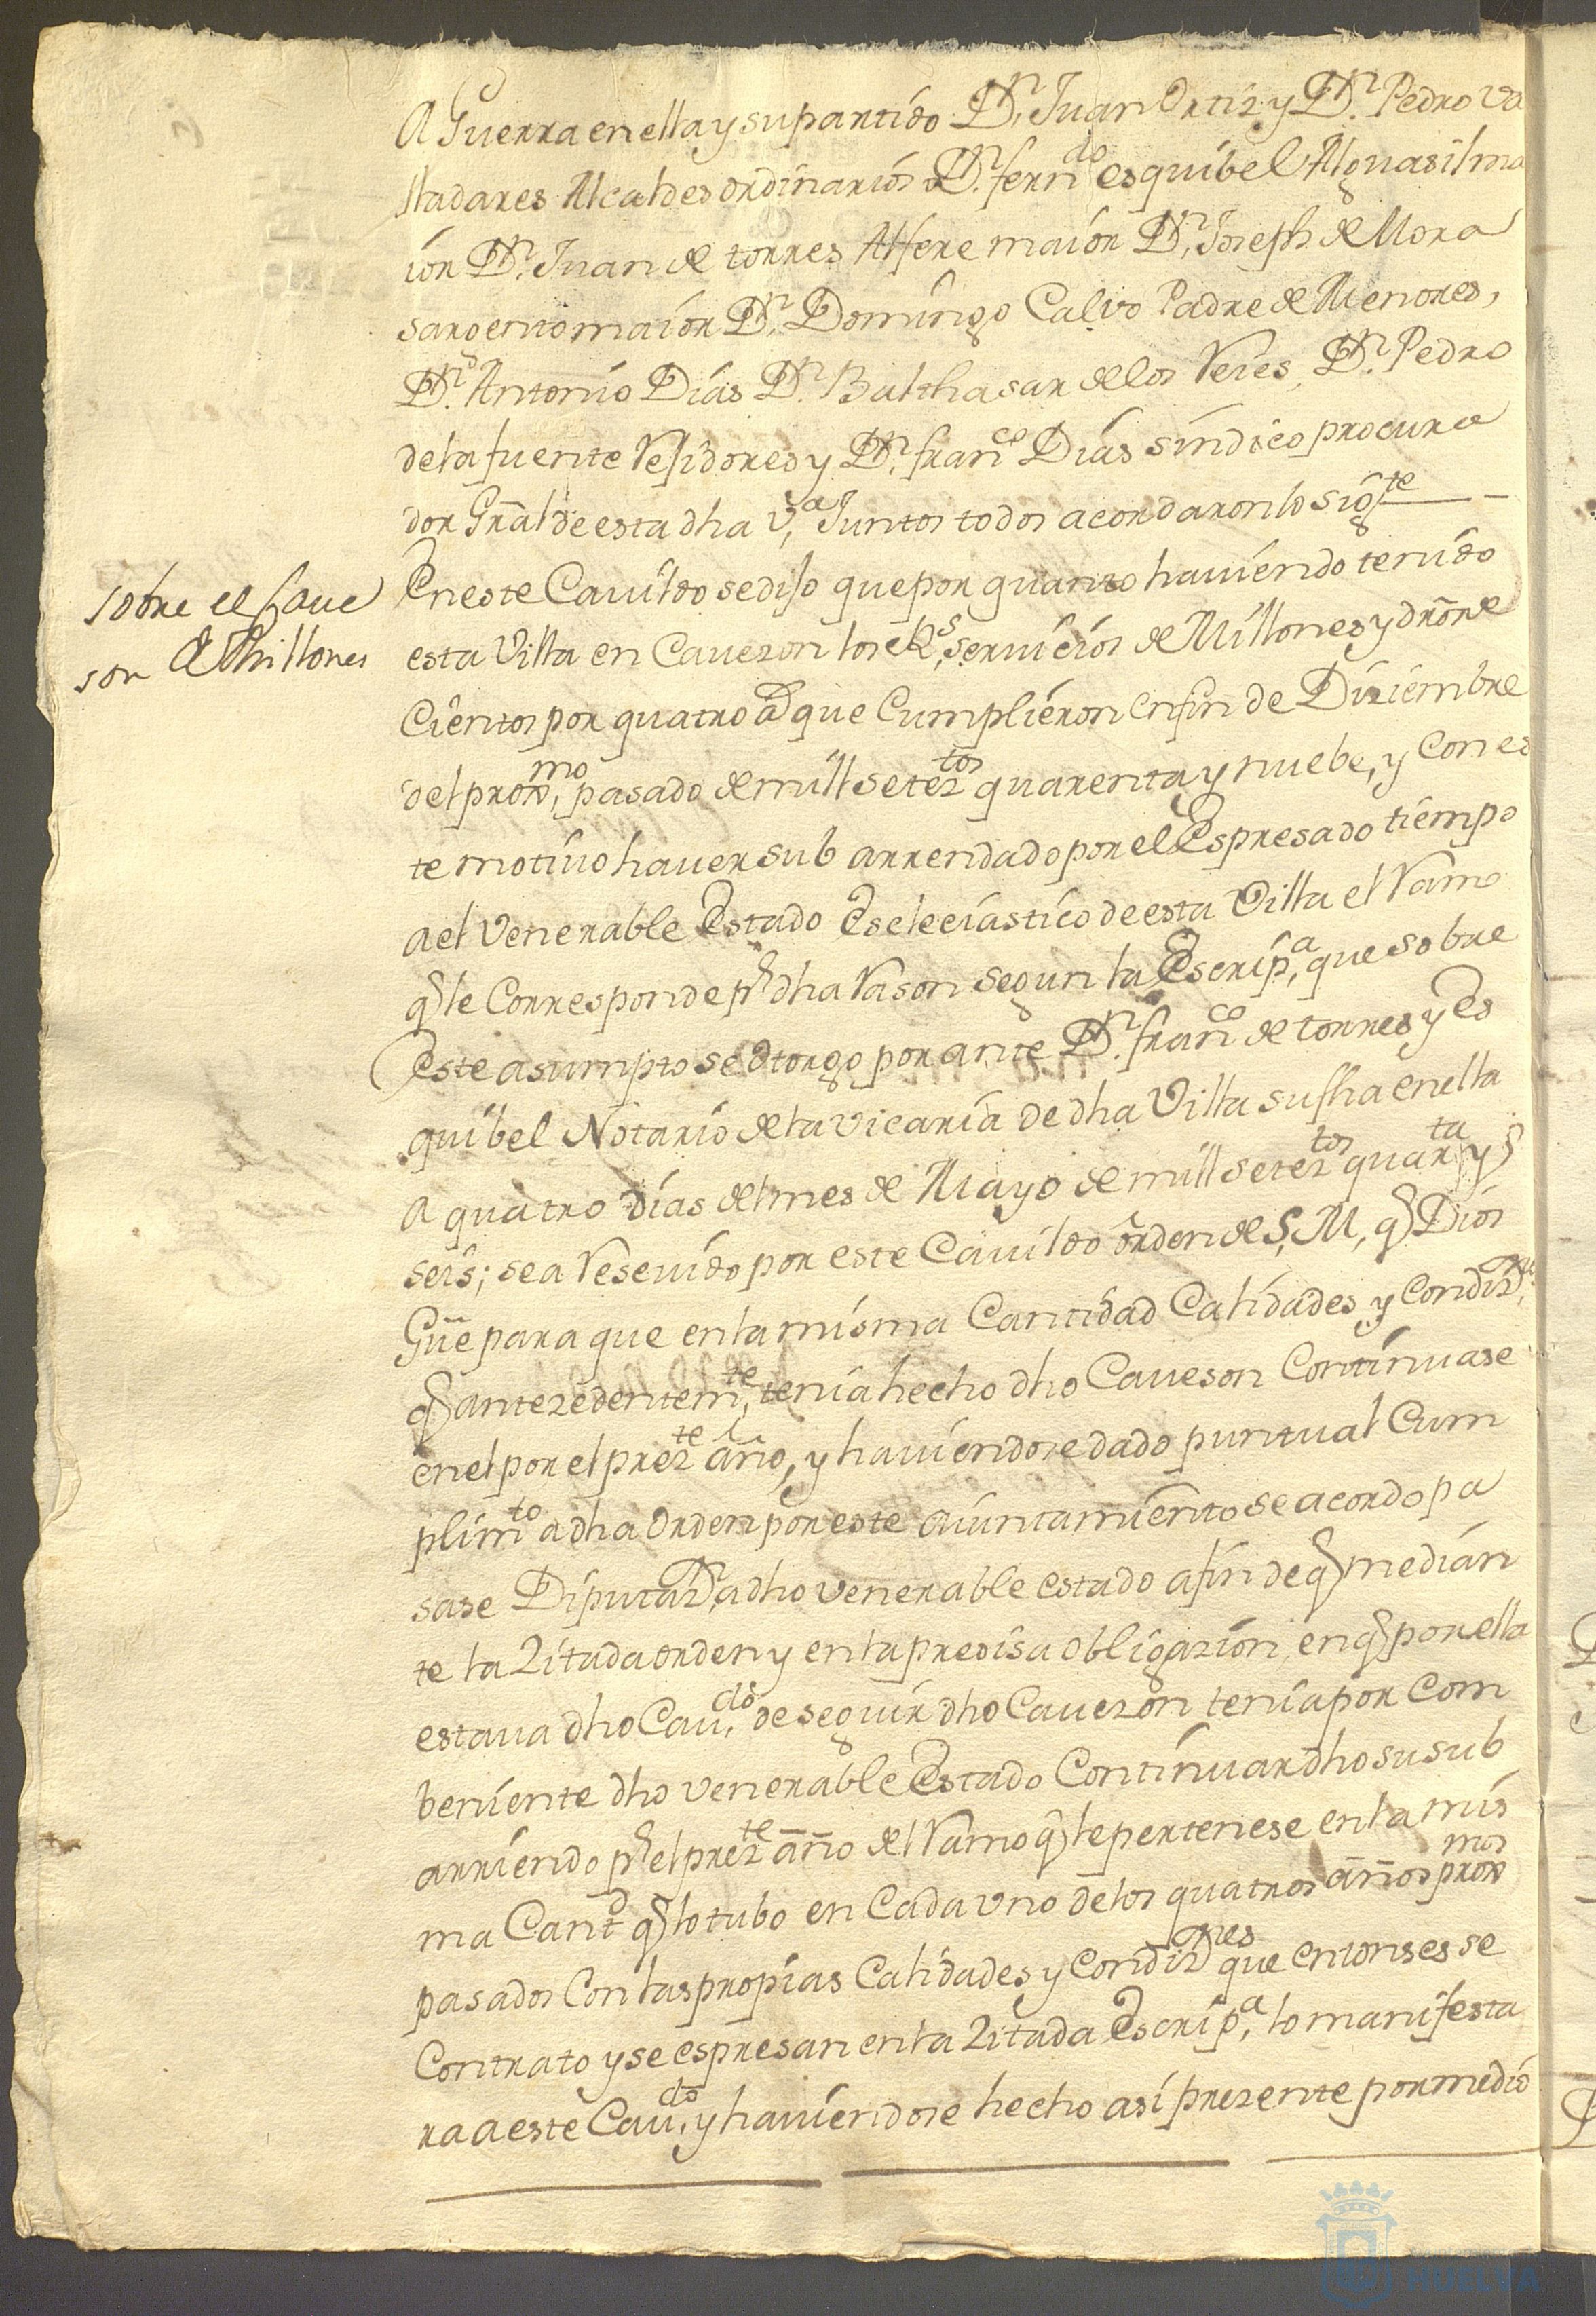 A Guerra en ella y su partido Dn. Juan Ortiz y Dn. Pedro Va
lladares Alcaldes ordinarios Dn. ferndo esquibel Alguasil ma
ior Dn. Juan de torres Alfere maior Dn. Joseph de Mora
sargento maior Dn. Domingo Calvo Padre de Menores,
Dn. Antonio Dias Dn. Balthasar de los Reies, Dn. Pedro
de la fuente Residores y Dn. franco Dias sindico procura
dor Gral de esta dha va. Juntos todos acordaron lo sigte
sobre el Cave
son de Millones
En este Cavildo se dijo que por quanto haviendo tenido
esta Villa en Cavezon los Rs. servicios de Millones y dros de
Cientos por quatro ad que Cumplieron en fin de Diziembre
del proxmo, pasado de mill seteztos quarenta y nuebe, y Con es
te motivo haver sub arrendado por el Espresado tiempo
a el Venerable Estado Eseleciastico de esta Villa el Ramo
q le Corresponde pr dha Rason segun la Escripa, que sobre
Este asumpto se Otorgo por ante Dn. franco de torres y Es
quibel Notario de la vicaria de dha Villa su fha en ella
a quatro dias del mes de Mayo de mill seteztos quarta y
seis; se a Resevido por este Cavildo orden de S. M, q Dios
Gue para que en la misma Cantidad Calidades y Condiznes
q antezedentemte, tenia hecho dho Caveson Continuase
en el por el prezte año, y haviendose dado puntual Cum
plimto a dha Orden por este aiuntamiento se acordo pa
sase Diputazn, a dho venerable estado a fin de q median
te la Zitada orden y en la presisa Obligazion en q por ella
estava dho Cavdo, de seguir dho Cavezon tenia por Com
beniente dho venerable Estado Continuar dho su sub
arriendo pr el prezte año del Ramo q le pertenese en la mis
ma Cantd q lo tubo en Cada uno de los quatros años proxmos
pasados Con las propias Calidades y Condiznes que entonses se
Contrato y se espresan en la Zitada Escripa, lo manifesta
ra a este Cavdo, y haviendose hecho asi prezente por medio
HUELVA